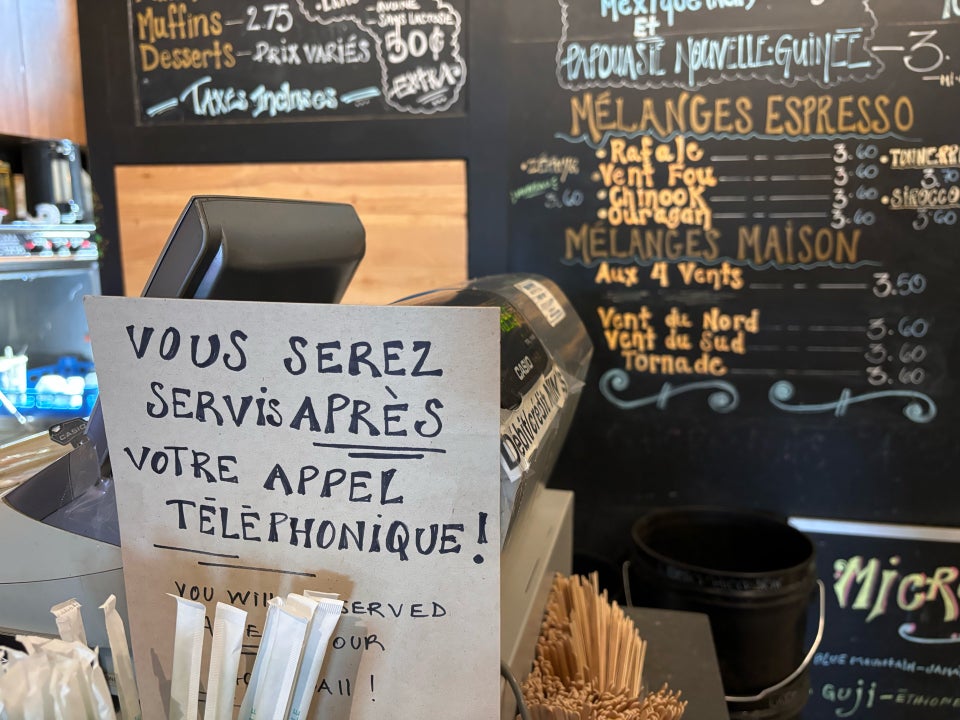 Muffins - 2.75
Desserts - PRIX VARIÉS
TAXES INCLUSES
50¢
EXTRA
ET
PAPOUASIE NOUVELLE-GUINÉE - 3.
MÉLANGES ESPRESSO
• Rafale 3.60
• Vent Fou 3.60
• Chinook 3.60
• Ouragan 3.60
3.60
• SIROCCO
3.60
MÉLANGES MAISON
Aux 4 Vents 3.50
Vent du Nord 3.60
Vent du Sud 3.60
Tornade 3.60
VOUS SEREZ
SERVIS APRÈS
VOTRE APPEL
TÉLÉPHONIQUE!
YOU WILL SERVED
OUR
All !
CASIO
CASIO
Debit/credit MIN 5
BLUE MOUNTAIN-
• GUJI - ÉTHIOP